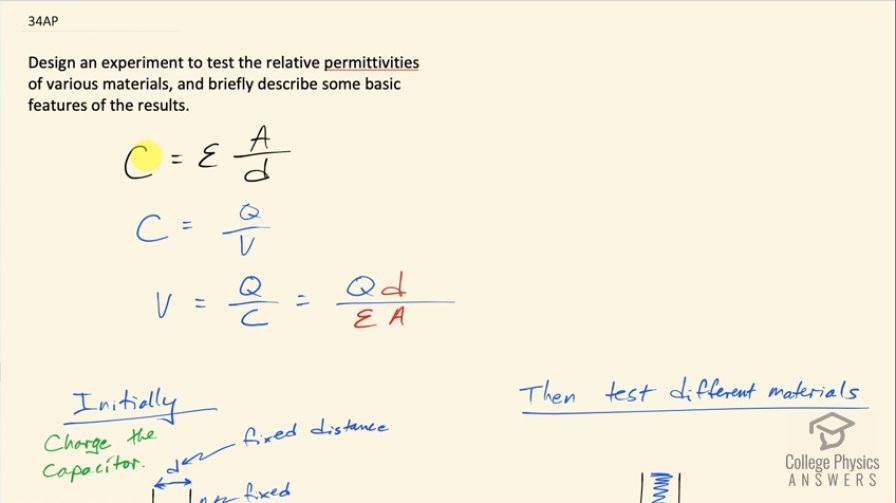 34AP
Design an experiment to test the relative permittivities
of various materials, and briefly describe some basic
features of the results.
C = ε A/d
C = Q/V
V = Q/C = Qd/εA
Initially
Then test different materials
Charge the
capacitor.
d
fixed distance
fixed
College Physics
ANSWERS